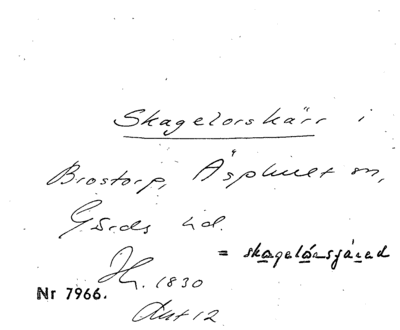 Skagelorskärr i
Brostorp, Äsphult sn,
Gärds hd.
= skagelårsjäred
H. 1830
Nr 7966.
Akt 12